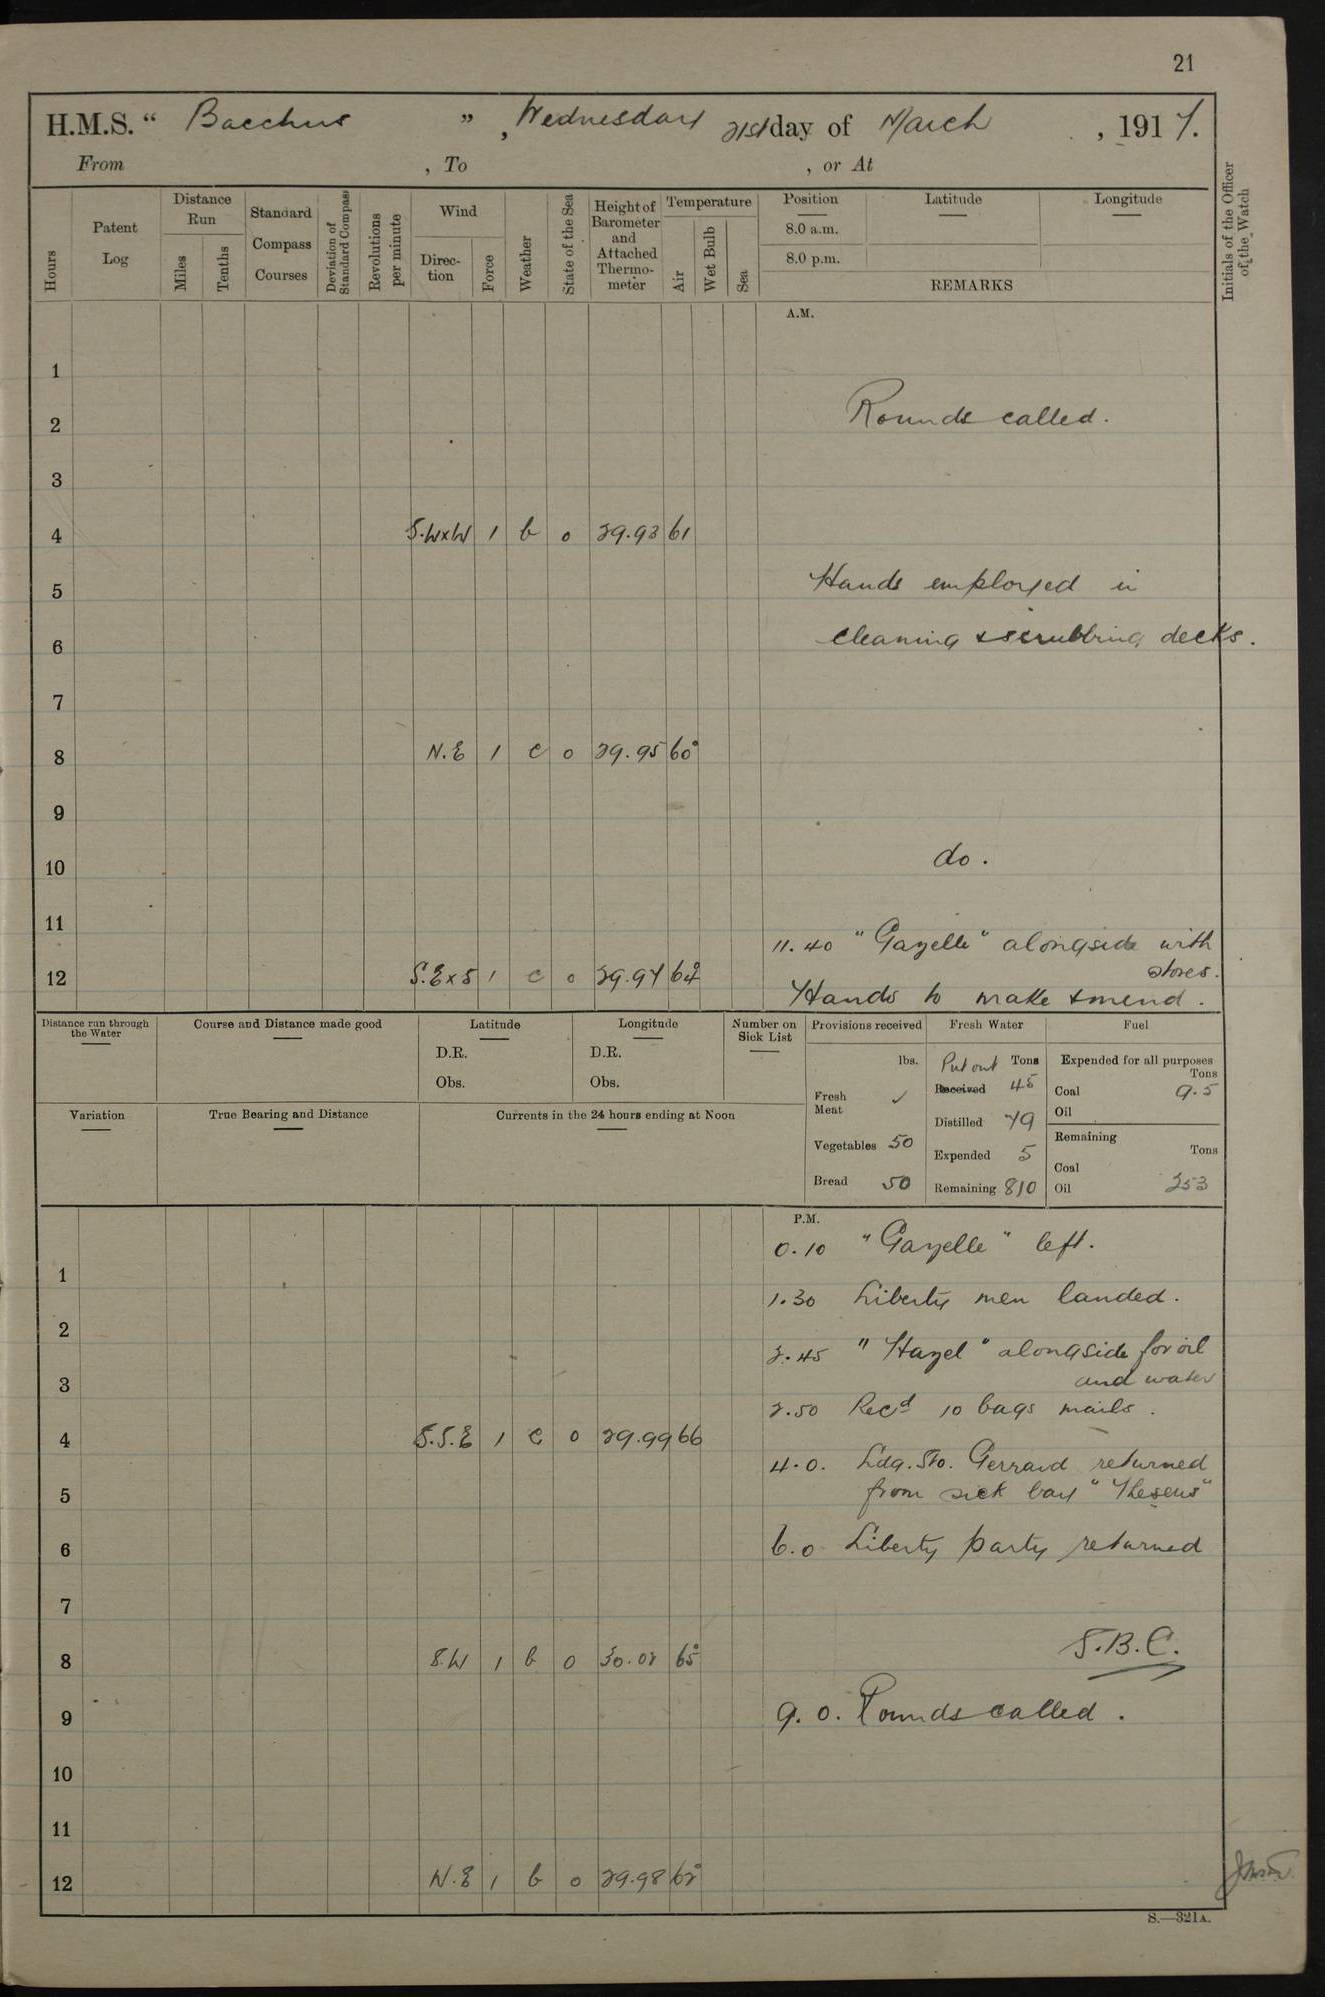 21
H.M.S. “ Bacchus ” , Wednesday 21st day of March , 1917.
From , To , or At
Hours
Patent Log
Distance Run
Miles
Tenths
Standard Compass Courses
Deviation of Standard Compass
Revolutions per minute
Wind
Direction
Force
Weather
State of the Sea
Height of Barometer and Attached Thermometer
Temperature
Air
Wet Bulb
Sea
Position Latitude Longitude
8.0 a.m.
8.0 p.m.
REMARKS
Initials of the Officer of the Watch
A.M.
1
2 Rounds called.
3
4 S.WxW 1 b 0 29.93 61
5 Hands employed in
6 cleaning & scrubbing decks.
7
8 N.E 1 c 0 29.95 60°
9
10 do.
11
11.40 "Gazelle" alongside with
stores.
12 S.ExS 1 c 0 29.97 64°
Hands to make & mend.
Distance run through the Water
Course and Distance made good
Latitude
D.R.
Obs.
Longitude
D.R.
Obs.
Number on Sick List
Variation
True Bearing and Distance
Currents in the 24 hours ending at Noon
Provisions received
lbs.
Fresh Meat ✓
Vegetables 50
Bread 50
Fresh Water
Put out Tons
Received 45
Distilled 79
Expended 5
Remaining 810
Fuel
Expended for all purposes
Tons
Coal 9.5
Oil
Remaining
Tons
Coal
Oil 253
P.M.
0.10 "Gazelle" left.
1
1.30 Liberty men landed.
2
2.45 "Hazel" alongside for oil
and water
3
2.50 Recd 10 bags mails.
4 S.S.E 1 c 0 29.99 66
4.0. Ldg. Sto. Gerrard returned
5 from sick bay "Theseus"
6 6.0 Liberty party returned
7
S.B.C.
8 S.W 1 b 0 30.02 65°
9 9.0. Rounds called.
10
11
12 N.E 1 b 0 29.98 62°
S.—321A.